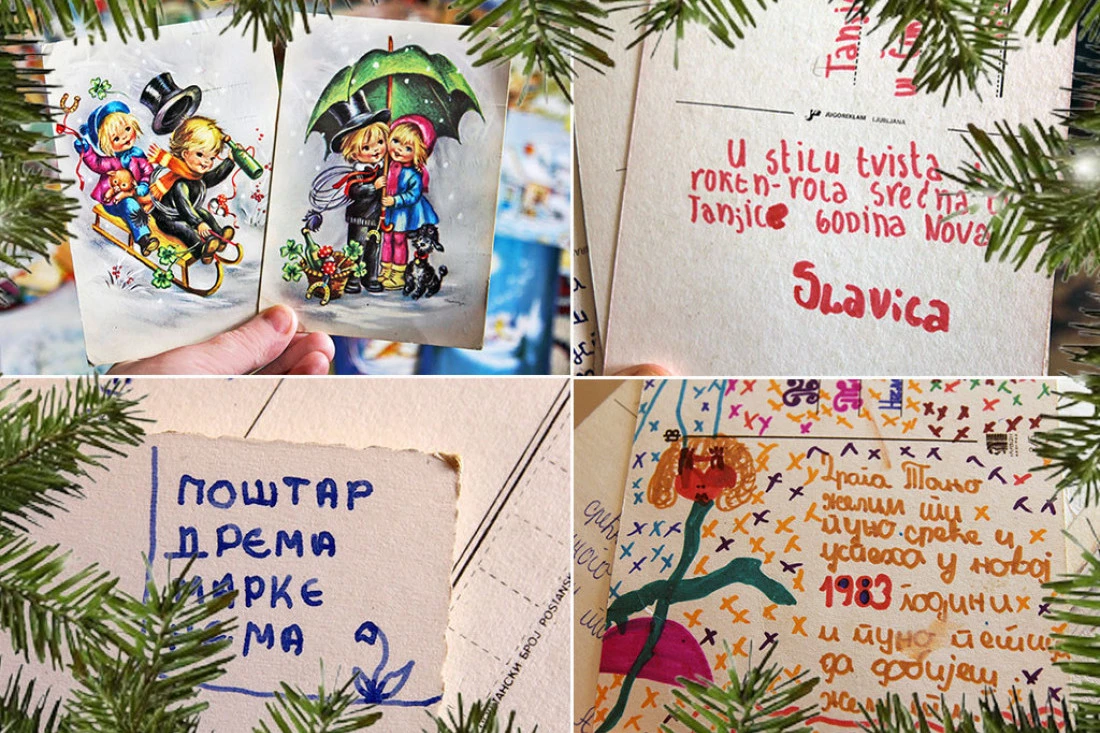 Tanj
JUGOREKLAM LJUBLJANA
U stilu tvista
roken-rola srećna
Tanjice Godina Nova
Slavica
ПОШТАР
ДРЕМА
МАРКЕ
НЕМА
драга Тањо
желим ти
пуно среће и
успеха у новој
1983 години
и пуно петица
да добијеш.